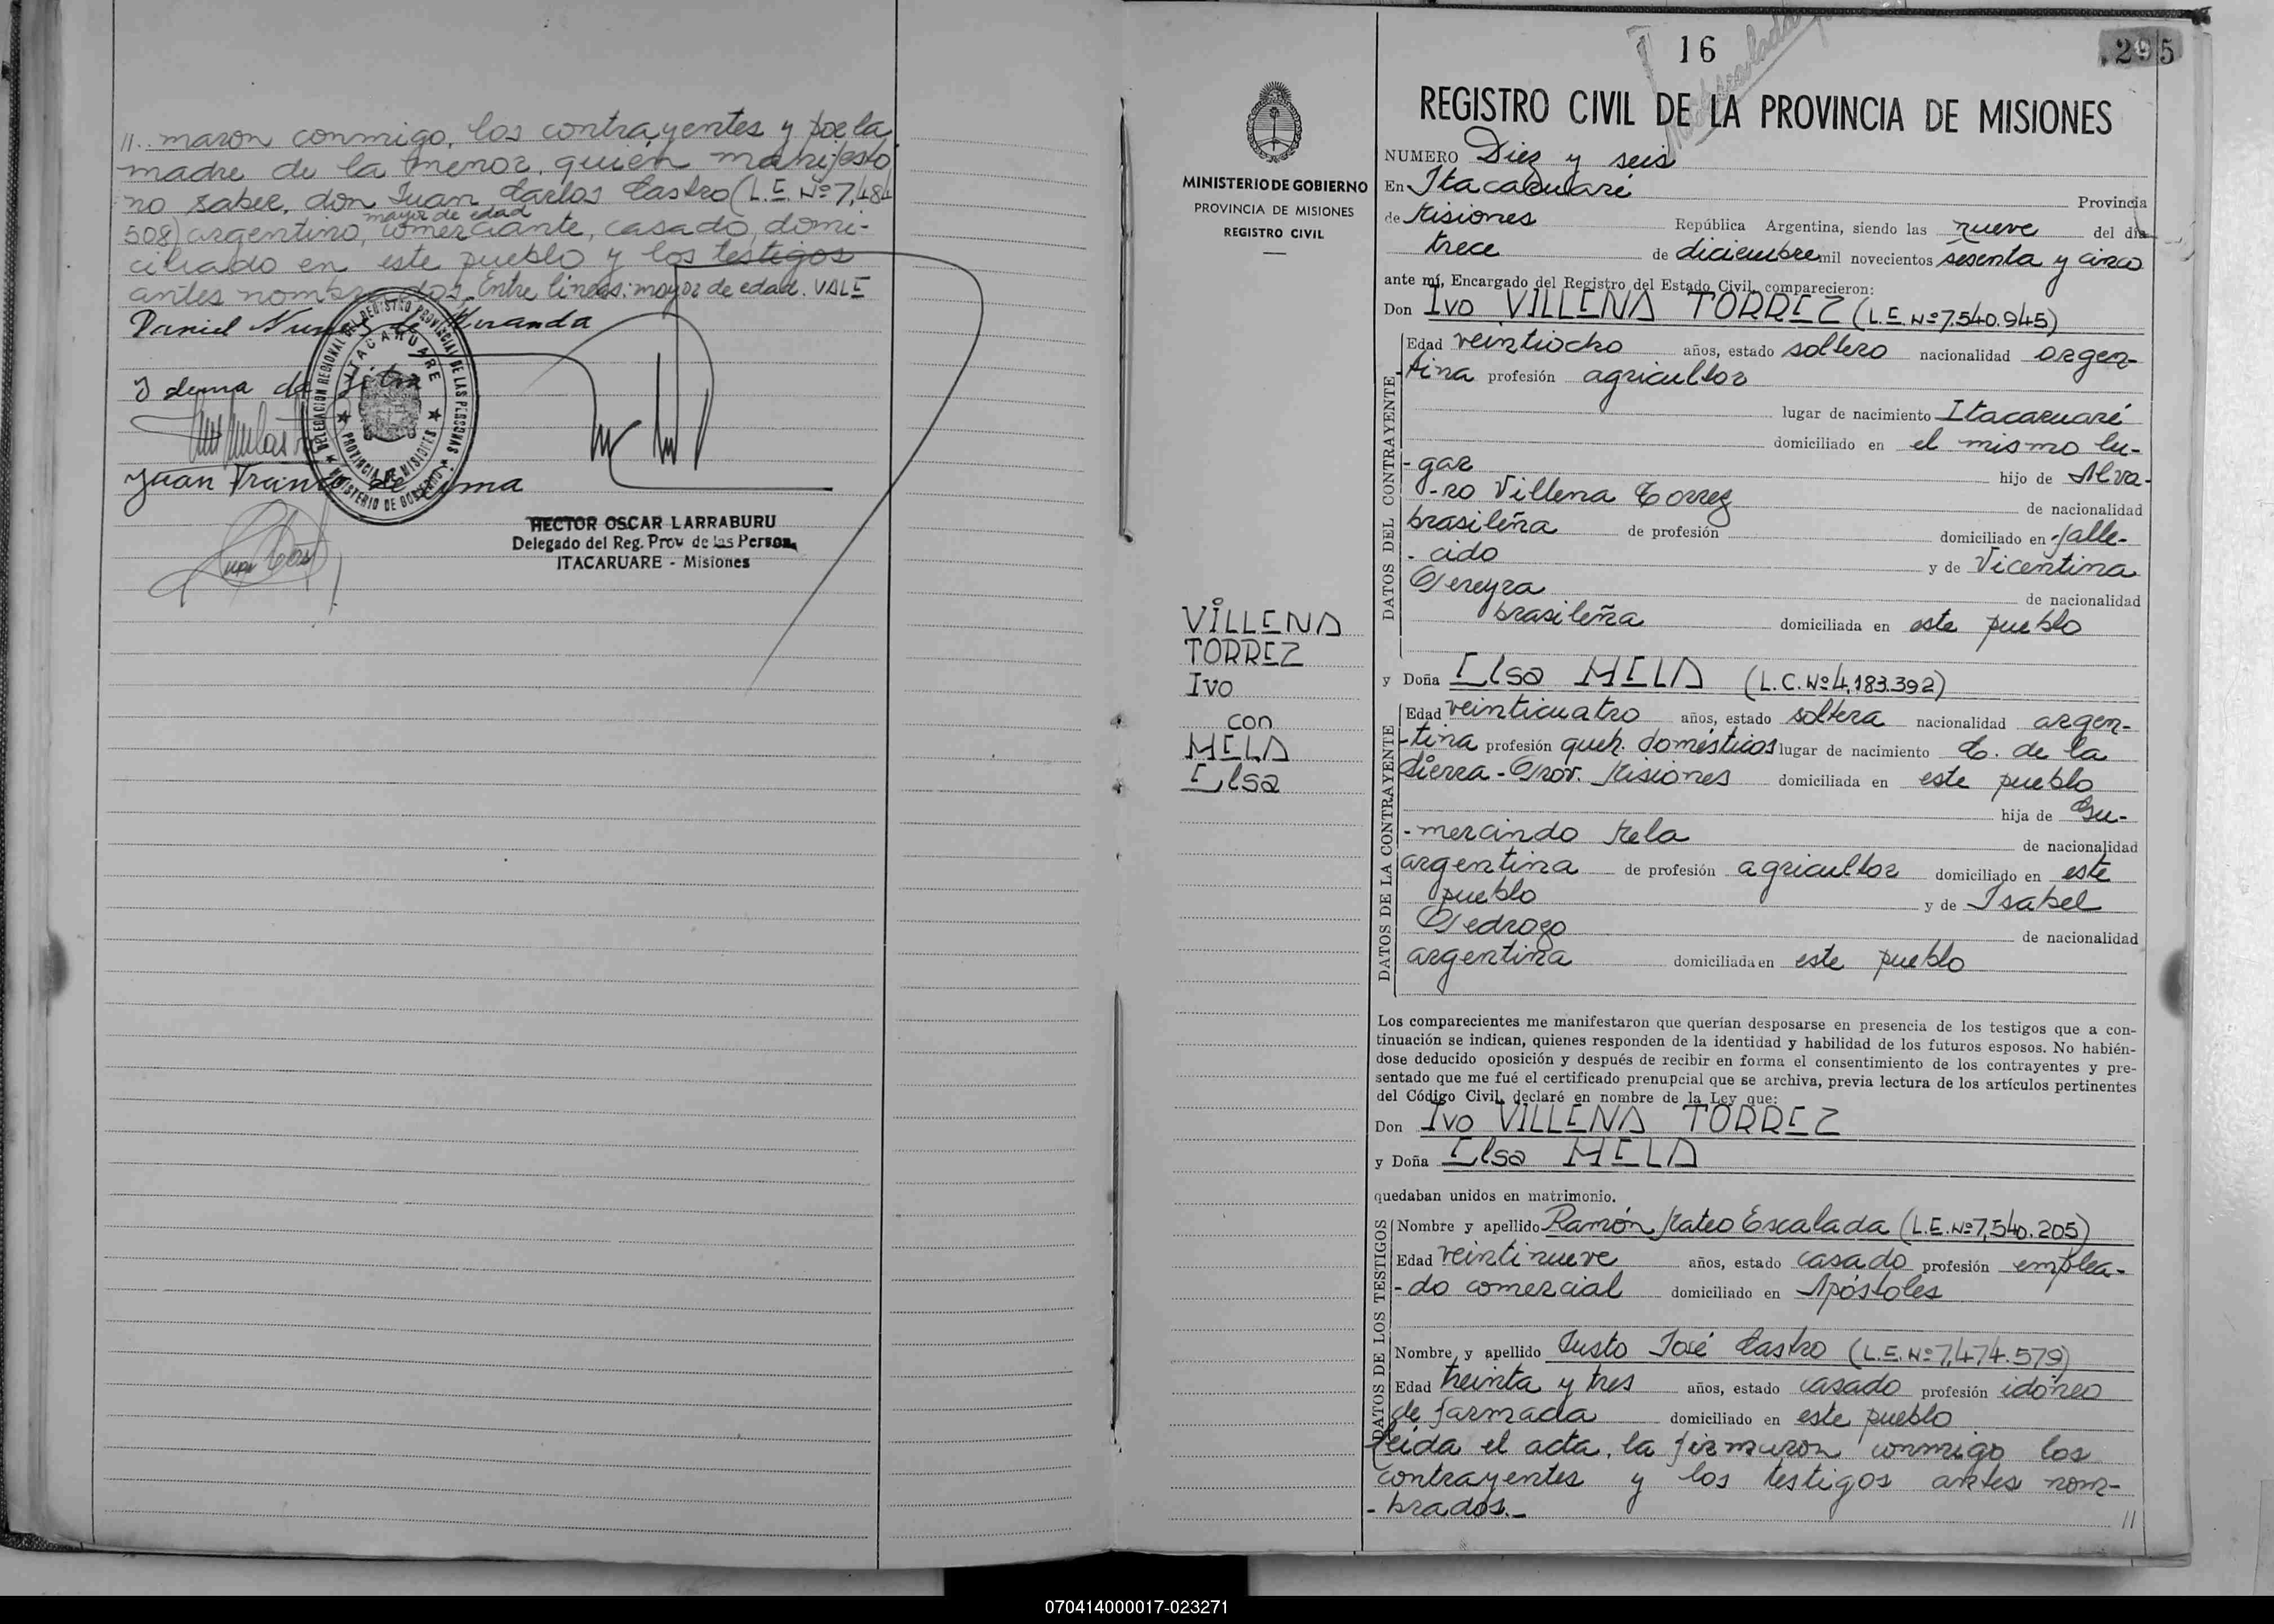 //.. maron conmigo, los contrayentes y por la
madre de la menor, quién manifestó
no saber, don Juan Carlos Castro (L.E. Nº 7,484
mayor de edad
508) argentino, comerciante, casado, domi-
ciliado en este pueblo y los testigos
antes nombrados. Entre lineas: mayor de edad. VALE
Daniel Nunes de Miranda
DELEGACION REGIONAL DEL REGISTRO PROVINCIAL DE LAS PERSONAS
ITACARUARE
PROVINCIA DE MISIONES
MINISTERIO DE GOBIERNO
Juan Franco de Lima
HECTOR OSCAR LARRABURU
Delegado del Reg. Prov de las Person.
ITACARUARE - Misiones
16
295
REGISTRO CIVIL DE LA PROVINCIA DE MISIONES
MINISTERIO DE GOBIERNO
PROVINCIA DE MISIONES
REGISTRO CIVIL
VILLENA
TORREZ
Ivo
con
MELA
Elsa
NUMERO Diez y seis
En Itacaruaré Provincia
de Misiones República Argentina, siendo las nueve del día
trece de diciembre mil novecientos sesenta y cinco
ante mí, Encargado del Registro del Estado Civil, comparecieron:
Don Ivo VILLENA TORREZ (L.E. Nº 7.540.945)
DATOS DEL CONTRAYENTE
Edad veintiocho años, estado soltero nacionalidad argen-
-tina profesión agricultor
lugar de nacimiento Itacaruaré
domiciliado en el mismo lu-
-gar hijo de Alva-
-ro Villena Torrez de nacionalidad
brasileña de profesión domiciliado en falle-
-cido y de Vicentina
Pereyra de nacionalidad
brasileña domiciliada en este pueblo
y Doña Elsa MELA (L.C. Nº 4,183.392)
DATOS DE LA CONTRAYENTE
Edad veinticuatro años, estado soltera nacionalidad argen-
-tina profesión queh. domésticos lugar de nacimiento C. de la
Sierra - Prov. Misiones domiciliada en este pueblo
hija de Gu-
-mercindo Mela de nacionalidad
argentina de profesión agricultor domiciliado en este
pueblo y de Isabel
Pedrozo de nacionalidad
argentina domiciliada en este pueblo
Los comparecientes me manifestaron que querían desposarse en presencia de los testigos que a con-
tinuación se indican, quienes responden de la identidad y habilidad de los futuros esposos. No habién-
dose deducido oposición y después de recibir en forma el consentimiento de los contrayentes y pre-
sentado que me fué el certificado prenupcial que se archiva, previa lectura de los artículos pertinentes
del Código Civil, declaré en nombre de la Ley que:
Don Ivo VILLENA TORREZ
y Doña Elsa MELA
quedaban unidos en matrimonio.
DATOS DE LOS TESTIGOS
Nombre y apellido Ramón Mateo Escalada (L.E. Nº 7,540.205)
Edad veintinueve años, estado casado profesión emplea-
-do comercial domiciliado en Apóstoles
Nombre y apellido Justo José Castro (L.E. Nº 7,474.579)
Edad treinta y tres años, estado casado profesión idóneo
de farmacia domiciliado en este pueblo
Leida el acta, la firmaron conmigo los
contrayentes y los testigos antes nom-
-brados.-
//
070414000017-023271